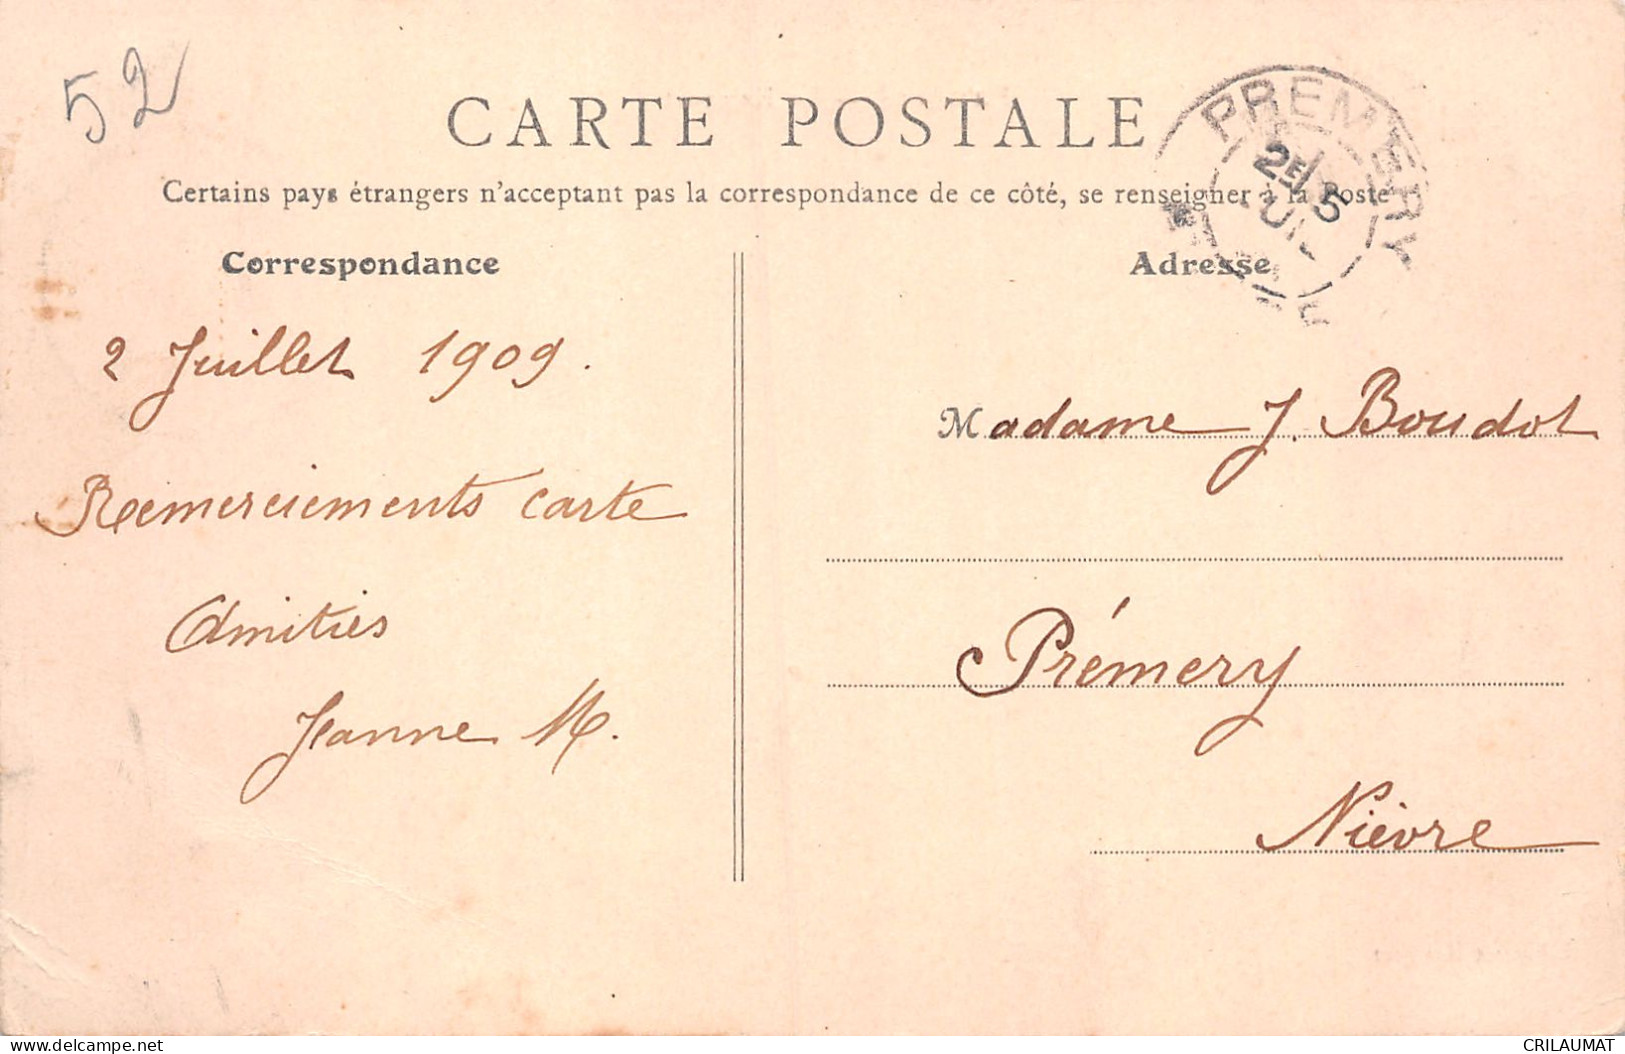 52
CARTE POSTALE
PREMERY
2E / 5
Certains pays étrangers n'acceptant pas la correspondance de ce côté, se renseigner à la Poste
Correspondance
Adresse
2 Juillet 1909.
Remerciements carte
Amitiés
Jeanne M.
Madame J. Boudot
Prémery
Nièvre
www.delcampe.net
CRILAUMAT